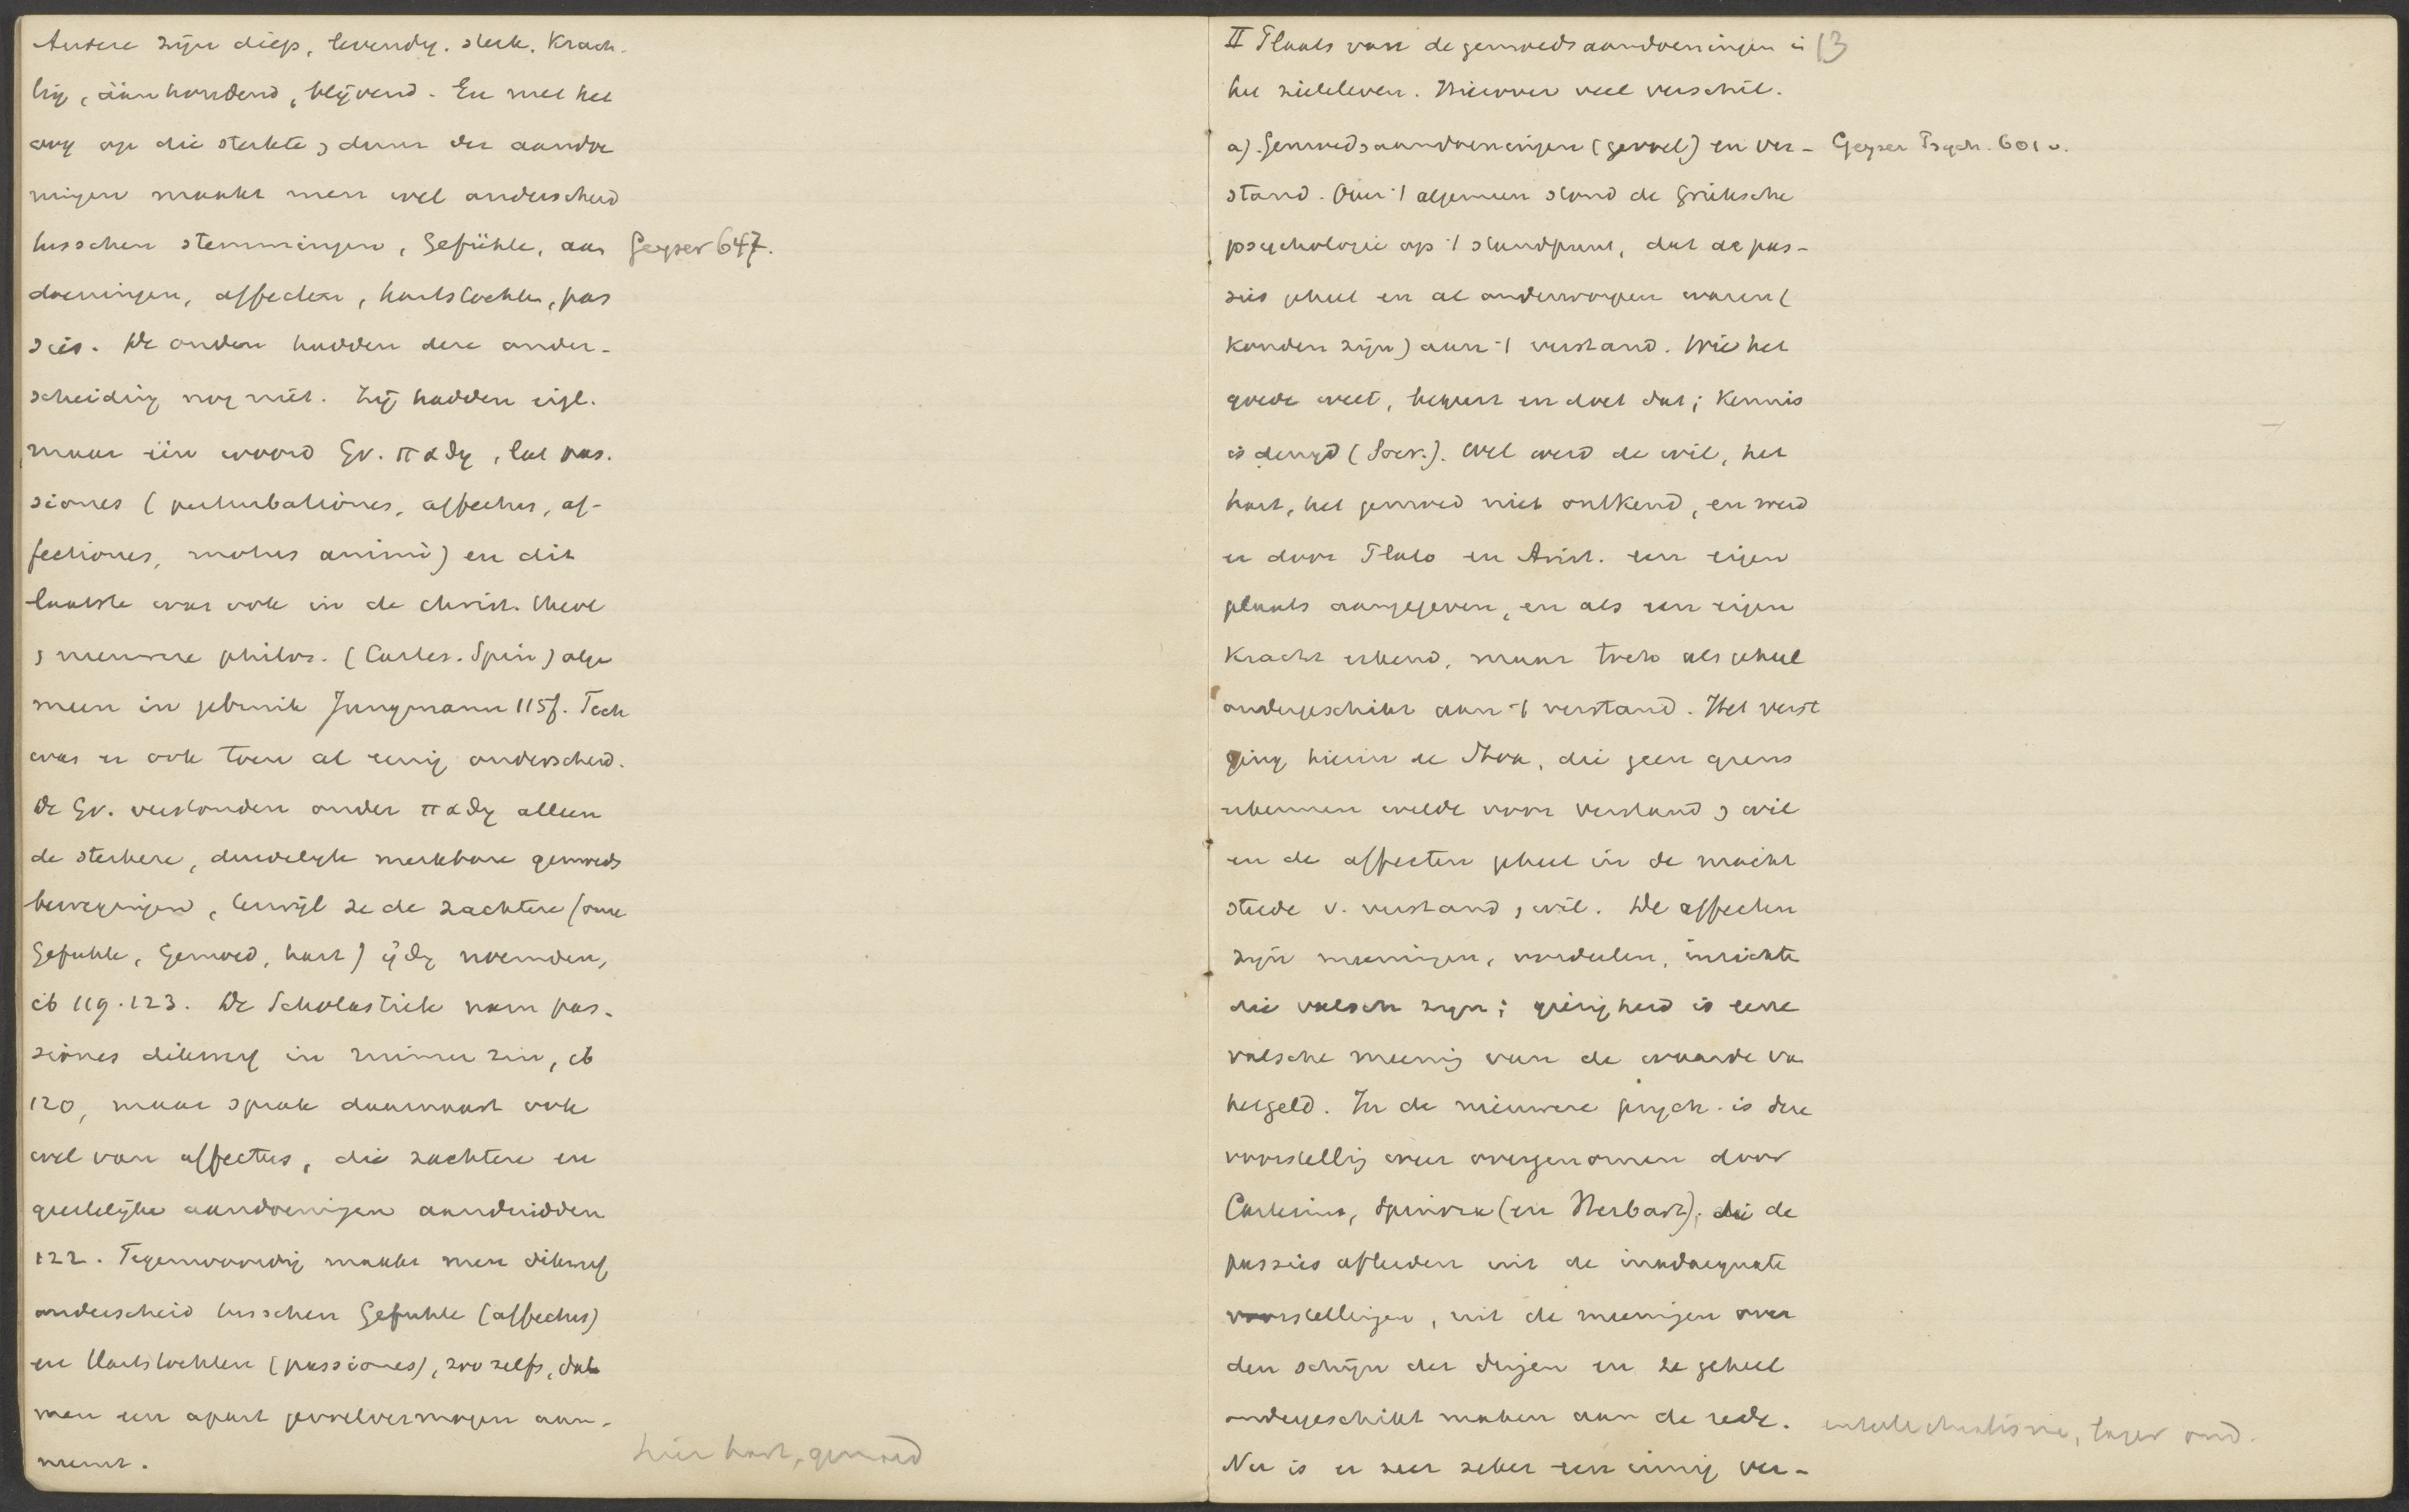 Andere zijn diep, levendig, sterk, krach-
tig, aanhoudend, blijvend. En met het
oog op die sterkte, duur der aandoe
ningen maakt men wel onderscheid
tusschen stemmingen, Gefühle, aan
Geyser 647.
doeningen, affecten, hartstochten, pas
sies. De ouden hadden deze onder-
scheiding nog niet. Zij hadden eigl.
maar één woord Gr. παθη, lat pas.
siones (perturbationes, affectus, af-
fectiones, motus animi) en dit
laatste was ook in de christ. theol
, nieuwere philos. (Cartes. Spin) alge
meen in gebruik Jungmann 115f. Toch
was er ook toen al eenig onderscheid.
De Gr. verstonden onder παθη alleen
de sterkere, duidelijk merkbare gemoeds
bewegingen, terwijl ze de zachtere (onze
Gefuhle, Gemoed, hart) ἠθη noemden,
ib 119.123. De Scholastiek nam pas-
siones dikwijls in ruimer zin, ib
120, maar sprak daarnaast ook
wel van affectus, die zachtere en
geestelijke aandoeningen aanduidden
122. Tegenwoordig maakt men dikwijls
onderscheid tusschen Gefuhle (affectus)
en Hartstochten (passiones), zoo zelfs, dat
men een apart gevoelvermogen aan-
neemt.
hier hart, gemoed
II Plaats van de gemoedsaandoeningen in
13
het zieleleven. Hierover veel verschil.
a). Gemoedsaandoeningen (gevoel) en ver-
Geyser Psych. 601 v.
stand. Over 't algemeen stond de Grieksche
psychologie op 't standpunt, dat de pas-
sies geheel en al onderworpen waren (
konden zijn) aan 't verstand. Wie het
goede weet, bezit en doet dat; kennis
is deugd (Socr.). Wel werd de wil, het
hart, het gemoed niet ontkend, en werd
er door Plato en Arist. een eigen
plaats aangegeven, en als een eigen
kracht erkend, maar toch als geheel
ondergeschikt aan 't verstand. Het verst
ging hierin de Stoa, die geen grens
erkennen wilde voor verstand, wil
en de affecten geheel in de macht
stelde v. verstand, wil. De affecten
zijn meeningen, oordeelen, inzichten
die valsch zijn; gierigheid is eene
valsche meening van de waarde van
het geld. In de nieuwere psych. is deze
voorstelling weer overgenomen door
Cartesius, Spinoza (en Herbart); die de
passies afleiden uit de inadaequate
voorstellingen, uit de meeningen over
den schijn der dingen en ze geheel
ondergeschikt maken aan de rede.
intellectualisme, tegen oud.
Nu is er zeer zeker een innig ver-